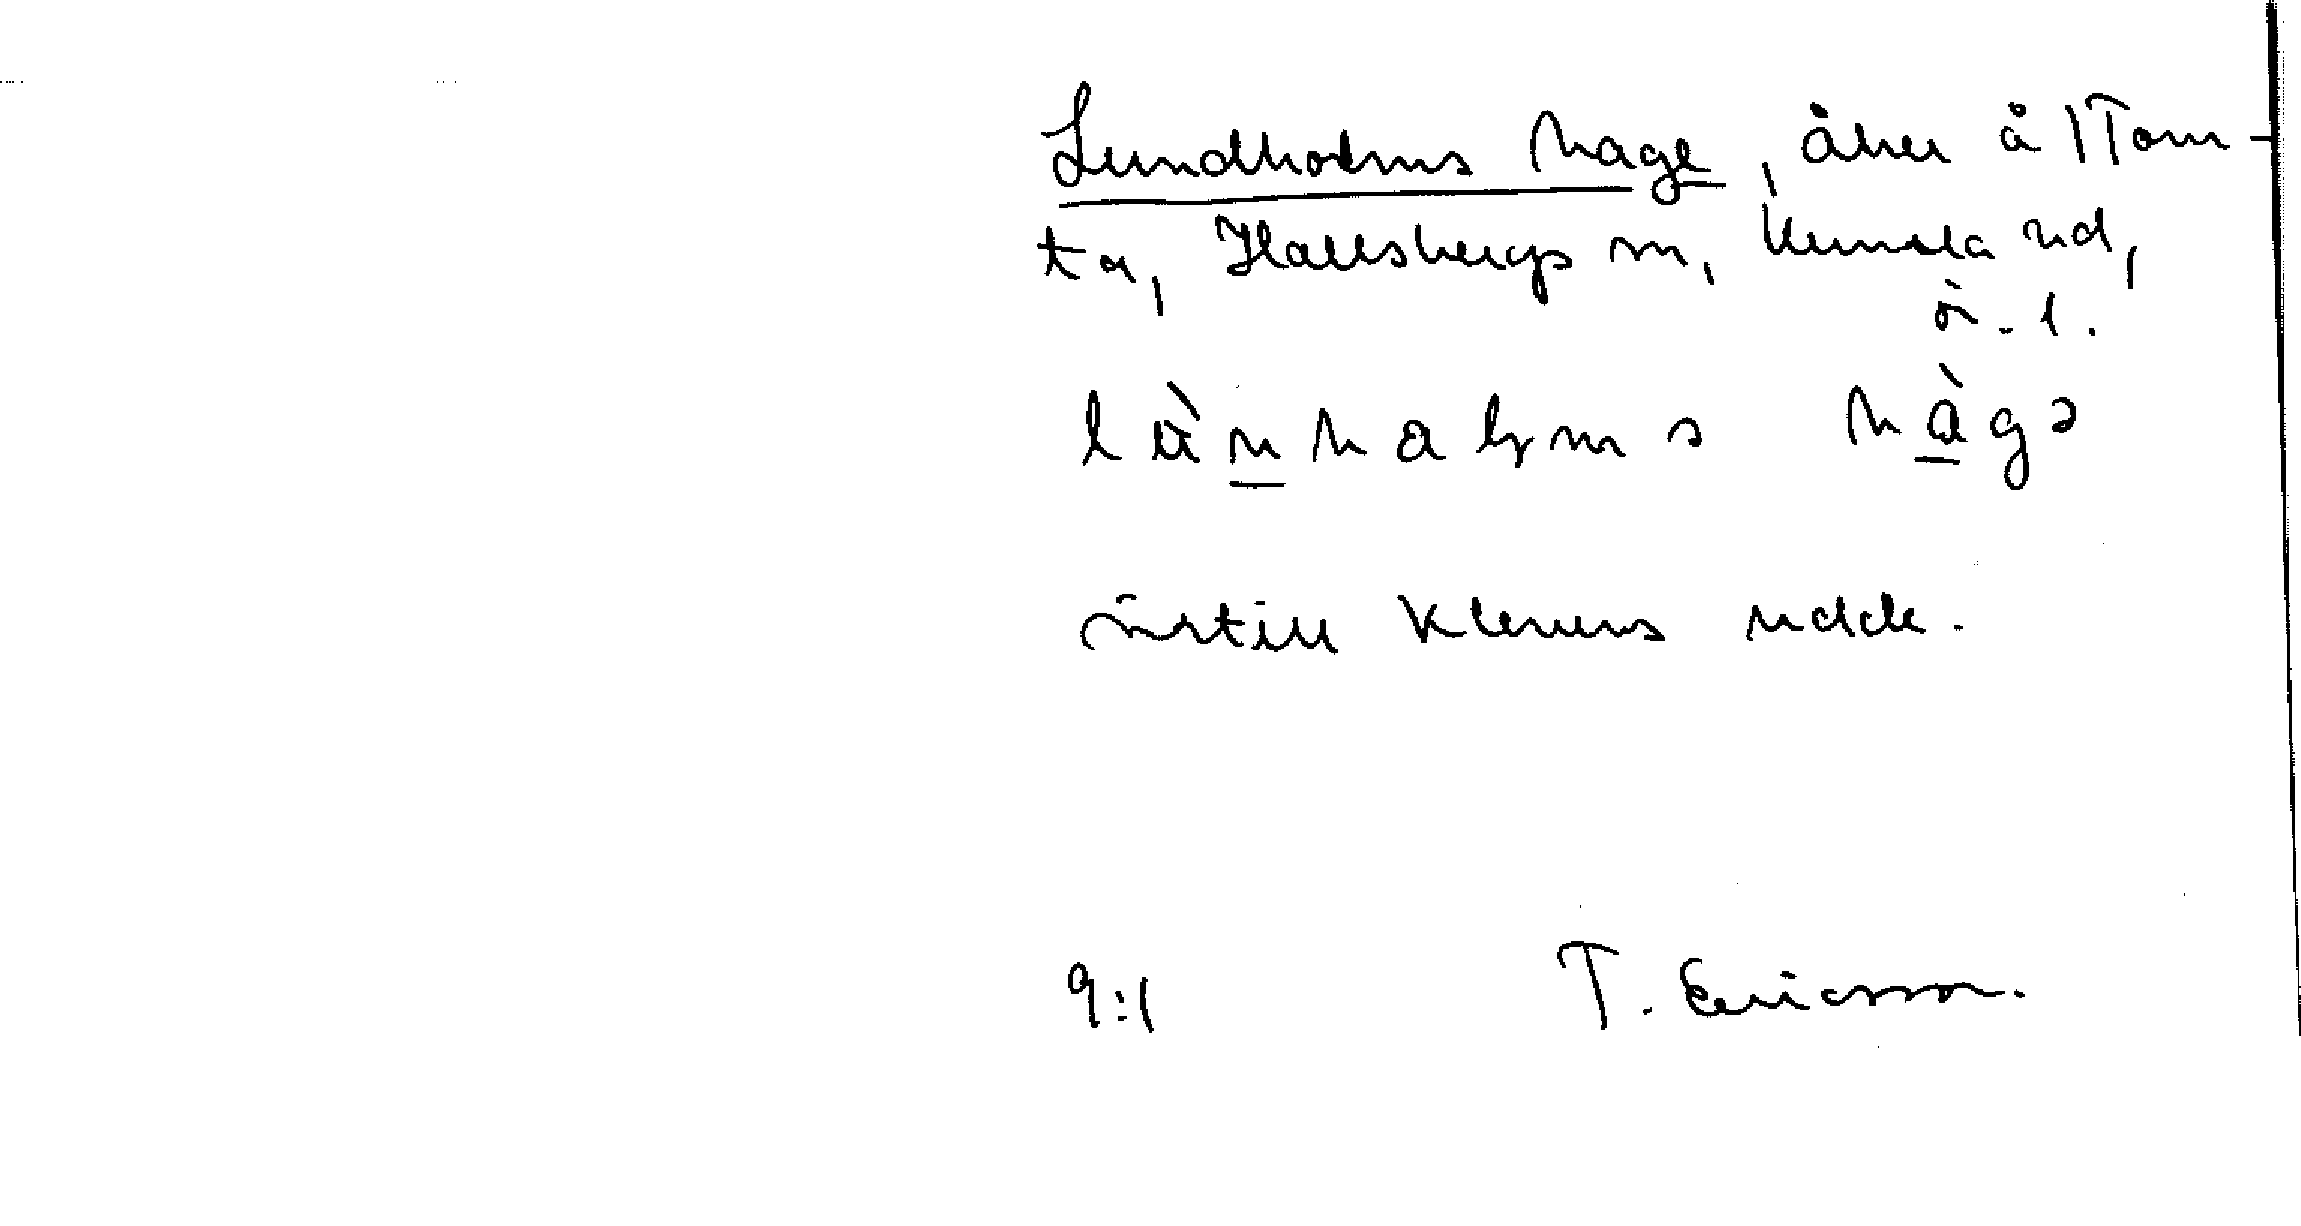 Lundholms hage, åker å 1 Tom-
ta, Hallsbergs sn, Kumla hd,
ö. l.
lùnhaḷms hàgə
östill Klerens udde.
9:1 T. Ericsson.